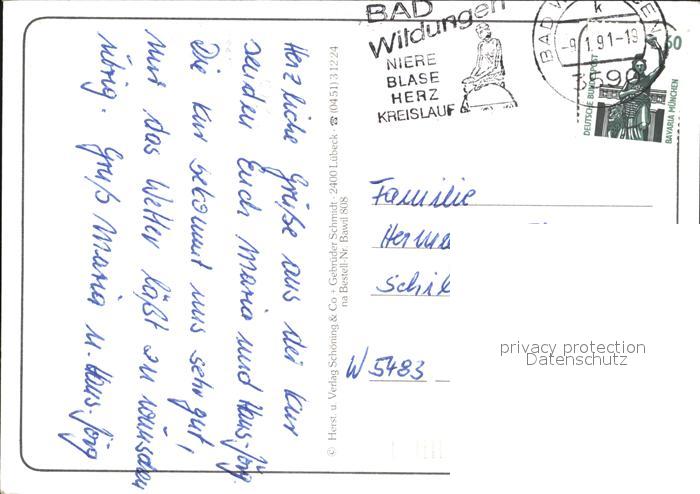 Herzliche Grüße aus der Kur
senden Euch Maria und Hans-Jörg.
Die Kur bekommt uns sehr gut,
nur das Wetter läßt zu wünschen
übrig. Gruß Maria u. Hans-Jörg
© Herst. u. Verlag Schöning & Co + Gebrüder Schmidt · 2400 Lübeck · ☎ (0451) 31224
na Bestell-Nr. Bawil 808
BAD
Wildungen
NIERE
BLASE
HERZ
KREISLAUF
BAD
k
-9.1.91-19
3590
50
DEUTSCHE BUNDESPOST
BAVARIA MÜNCHEN
Familie
W 5483
privacy protection
Datenschutz